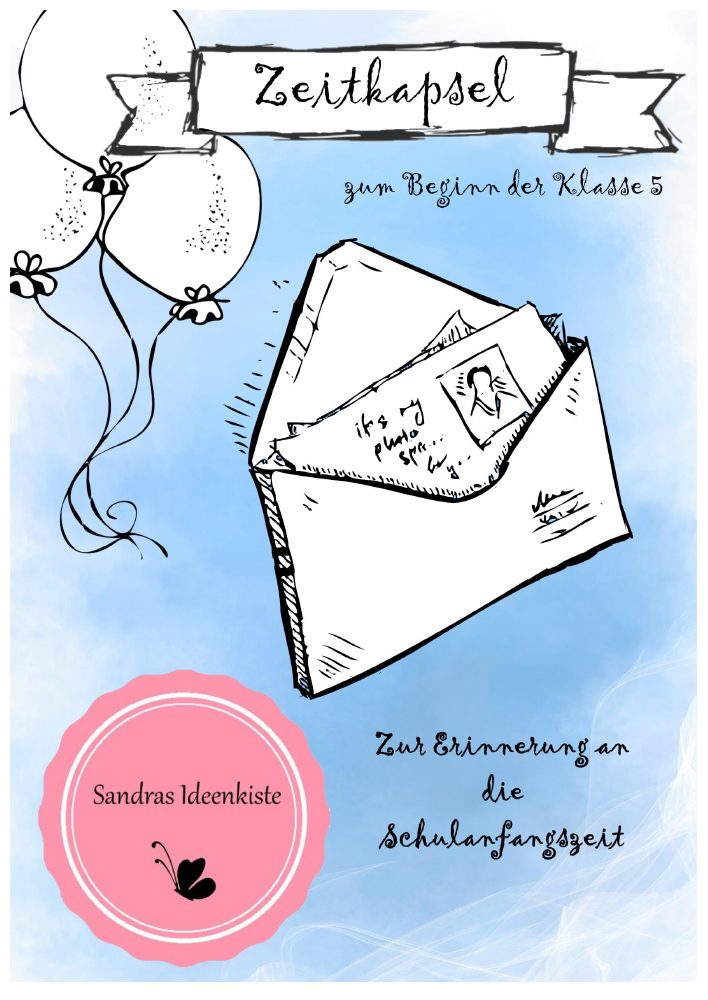 Zeitkapsel
zum Beginn der Klasse 5
it's my
photo
Zur Erinnerung an
die
Schulanfangszeit
Sandras Ideenkiste